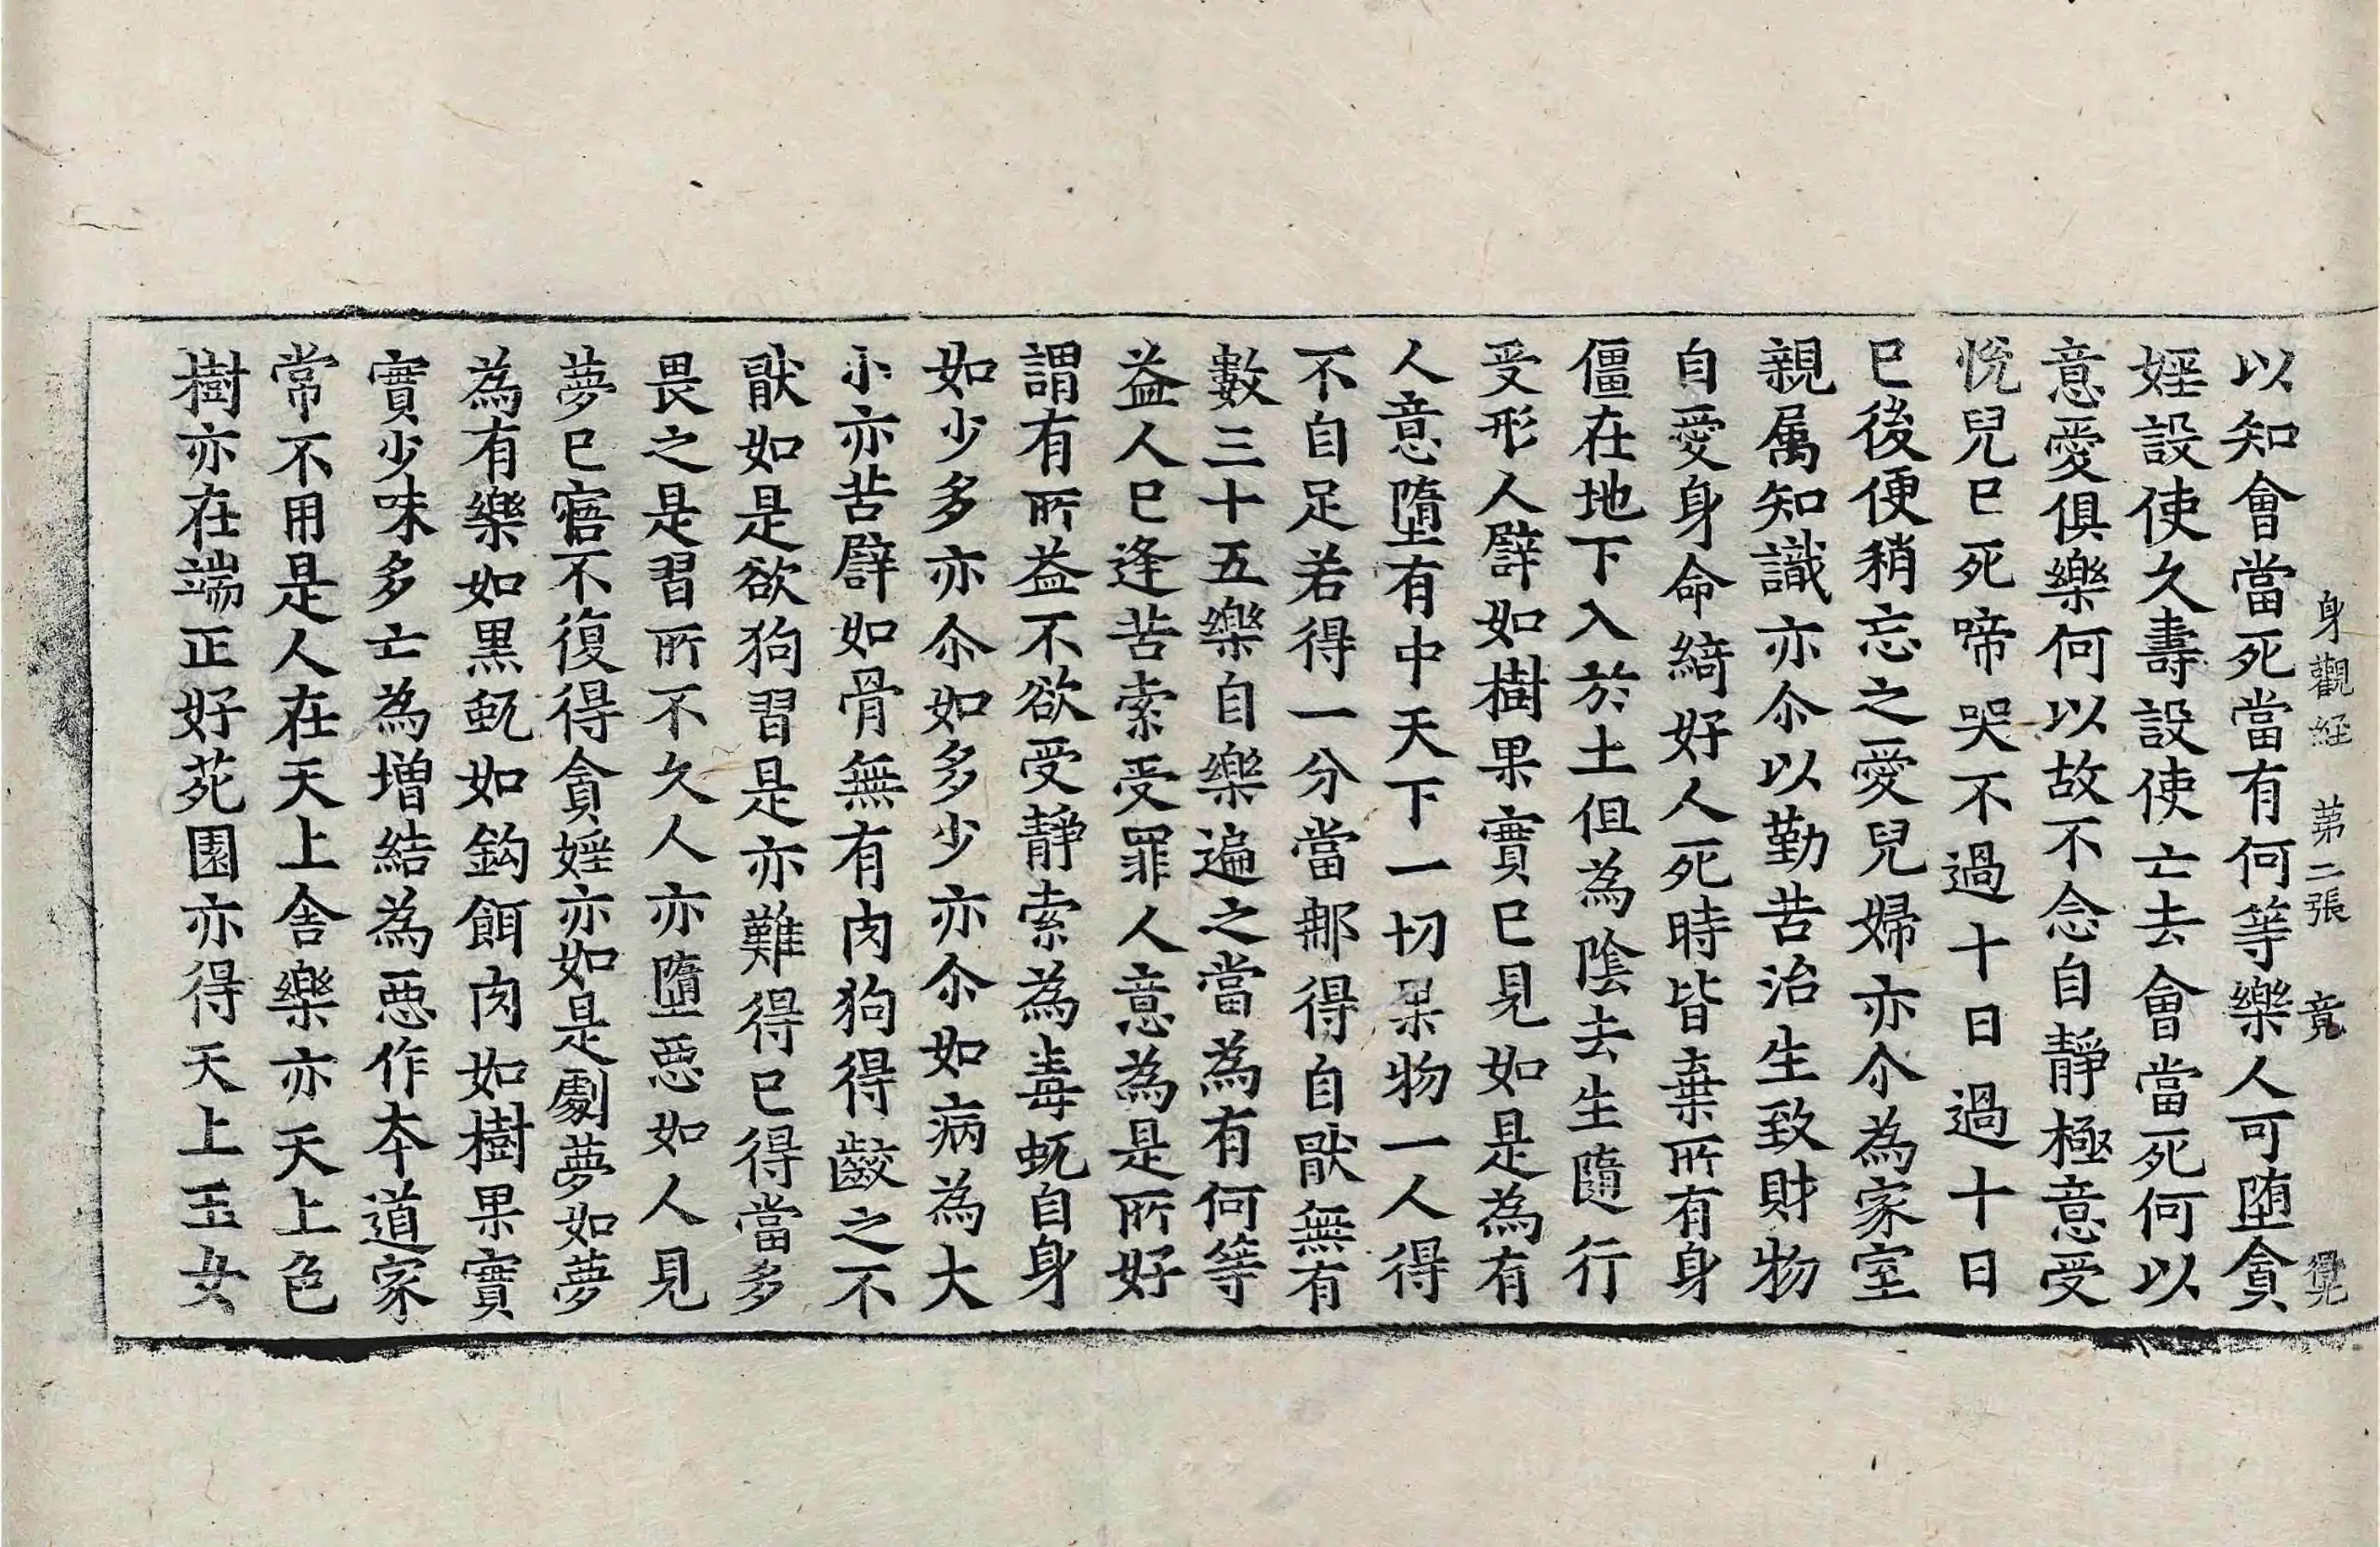 身觀経　第二張　竟　覺
以知會當死當有何等樂人可堕貪
婬設使久壽設使亡去會當死何以
意愛俱樂何以故不念自靜極意受
恱兒巳死啼哭不過十日過十日
巳後便稍忘之愛兒婦亦尒為家室
親属知識亦尒以勤苦治生致財物
自愛身命綺好人死時皆棄所有身
僵在地下入於土但為陰去生隨行
受形人譬如樹果實巳見如是為有
人意墮有中天下一切果物一人得
不自足若得一分當那得自猒無有
數三十五樂自樂遍之當為有何等
益人巳逢苦索受罪人意為是所好
謂有所益不欲受靜索為毒蚖自身
如少多亦尒如多少亦尒如病為大
小亦苦譬如骨無有肉狗得齩之不
猒如是欲狗習是亦難得巳得當多
畏之是習所不久人亦墮惡如人見
夢巳寤不復得貪婬亦如是劇夢如夢
為有樂如黑蚖如鈎餌肉如樹果實
實少味多亡為增結為惡作夲道家
常不用是人在天上舎樂亦天上色
樹亦在端正好苑園亦得天上玉女